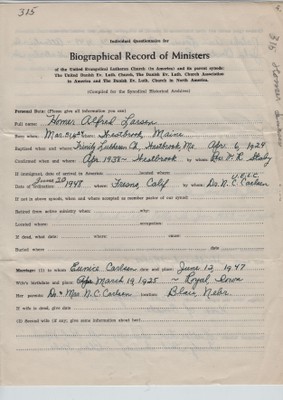 315
318 Homer Larsen
Individual Questionnaire for
Biographical Record of Ministers
of the United Evangelical Lutheran Church (in America) and its parent synods:
The United Danish Ev. Luth. Church, The Danish Ev. Luth. Church Association
in America and The Danish Ev. Luth. Church in North America.
(Compiled for the Synodical Historical Archives)
Personal Data: (Please give all information you can)
Full name: Homer Alfred Larsen
Born when: where: Westbrook, Maine
Baptized when and where: Trinity Lutheran Ch, Westbrook, Me. Apr. 6, 1924
Confirmed when and where: Apr 1938 - Westbrook by whom:
If immigrated, date of arrival in America: located where: U.E.L.C.
June 20
Date of ordination: 1948 where: Fresno, Calif by whom: Dr. N.C. Carlsen
If not in above synods, when and where accepted as member pastor of our synod:
Retired from active ministry when: why:
Located where: occupation:
If dead, what date: where: cause:
Buried where: date
Marriage: (1) to whom: Eunice Carlsen date and place: June 12, 1947
Wife's birthdate and place: March 19, 1925 - Royal Iowa
Her parents: Dr + Mrs. N.C. Carlsen location: Blair, Nebr.
If wife is dead, give date
(2) Second wife (if any; give same information about her)